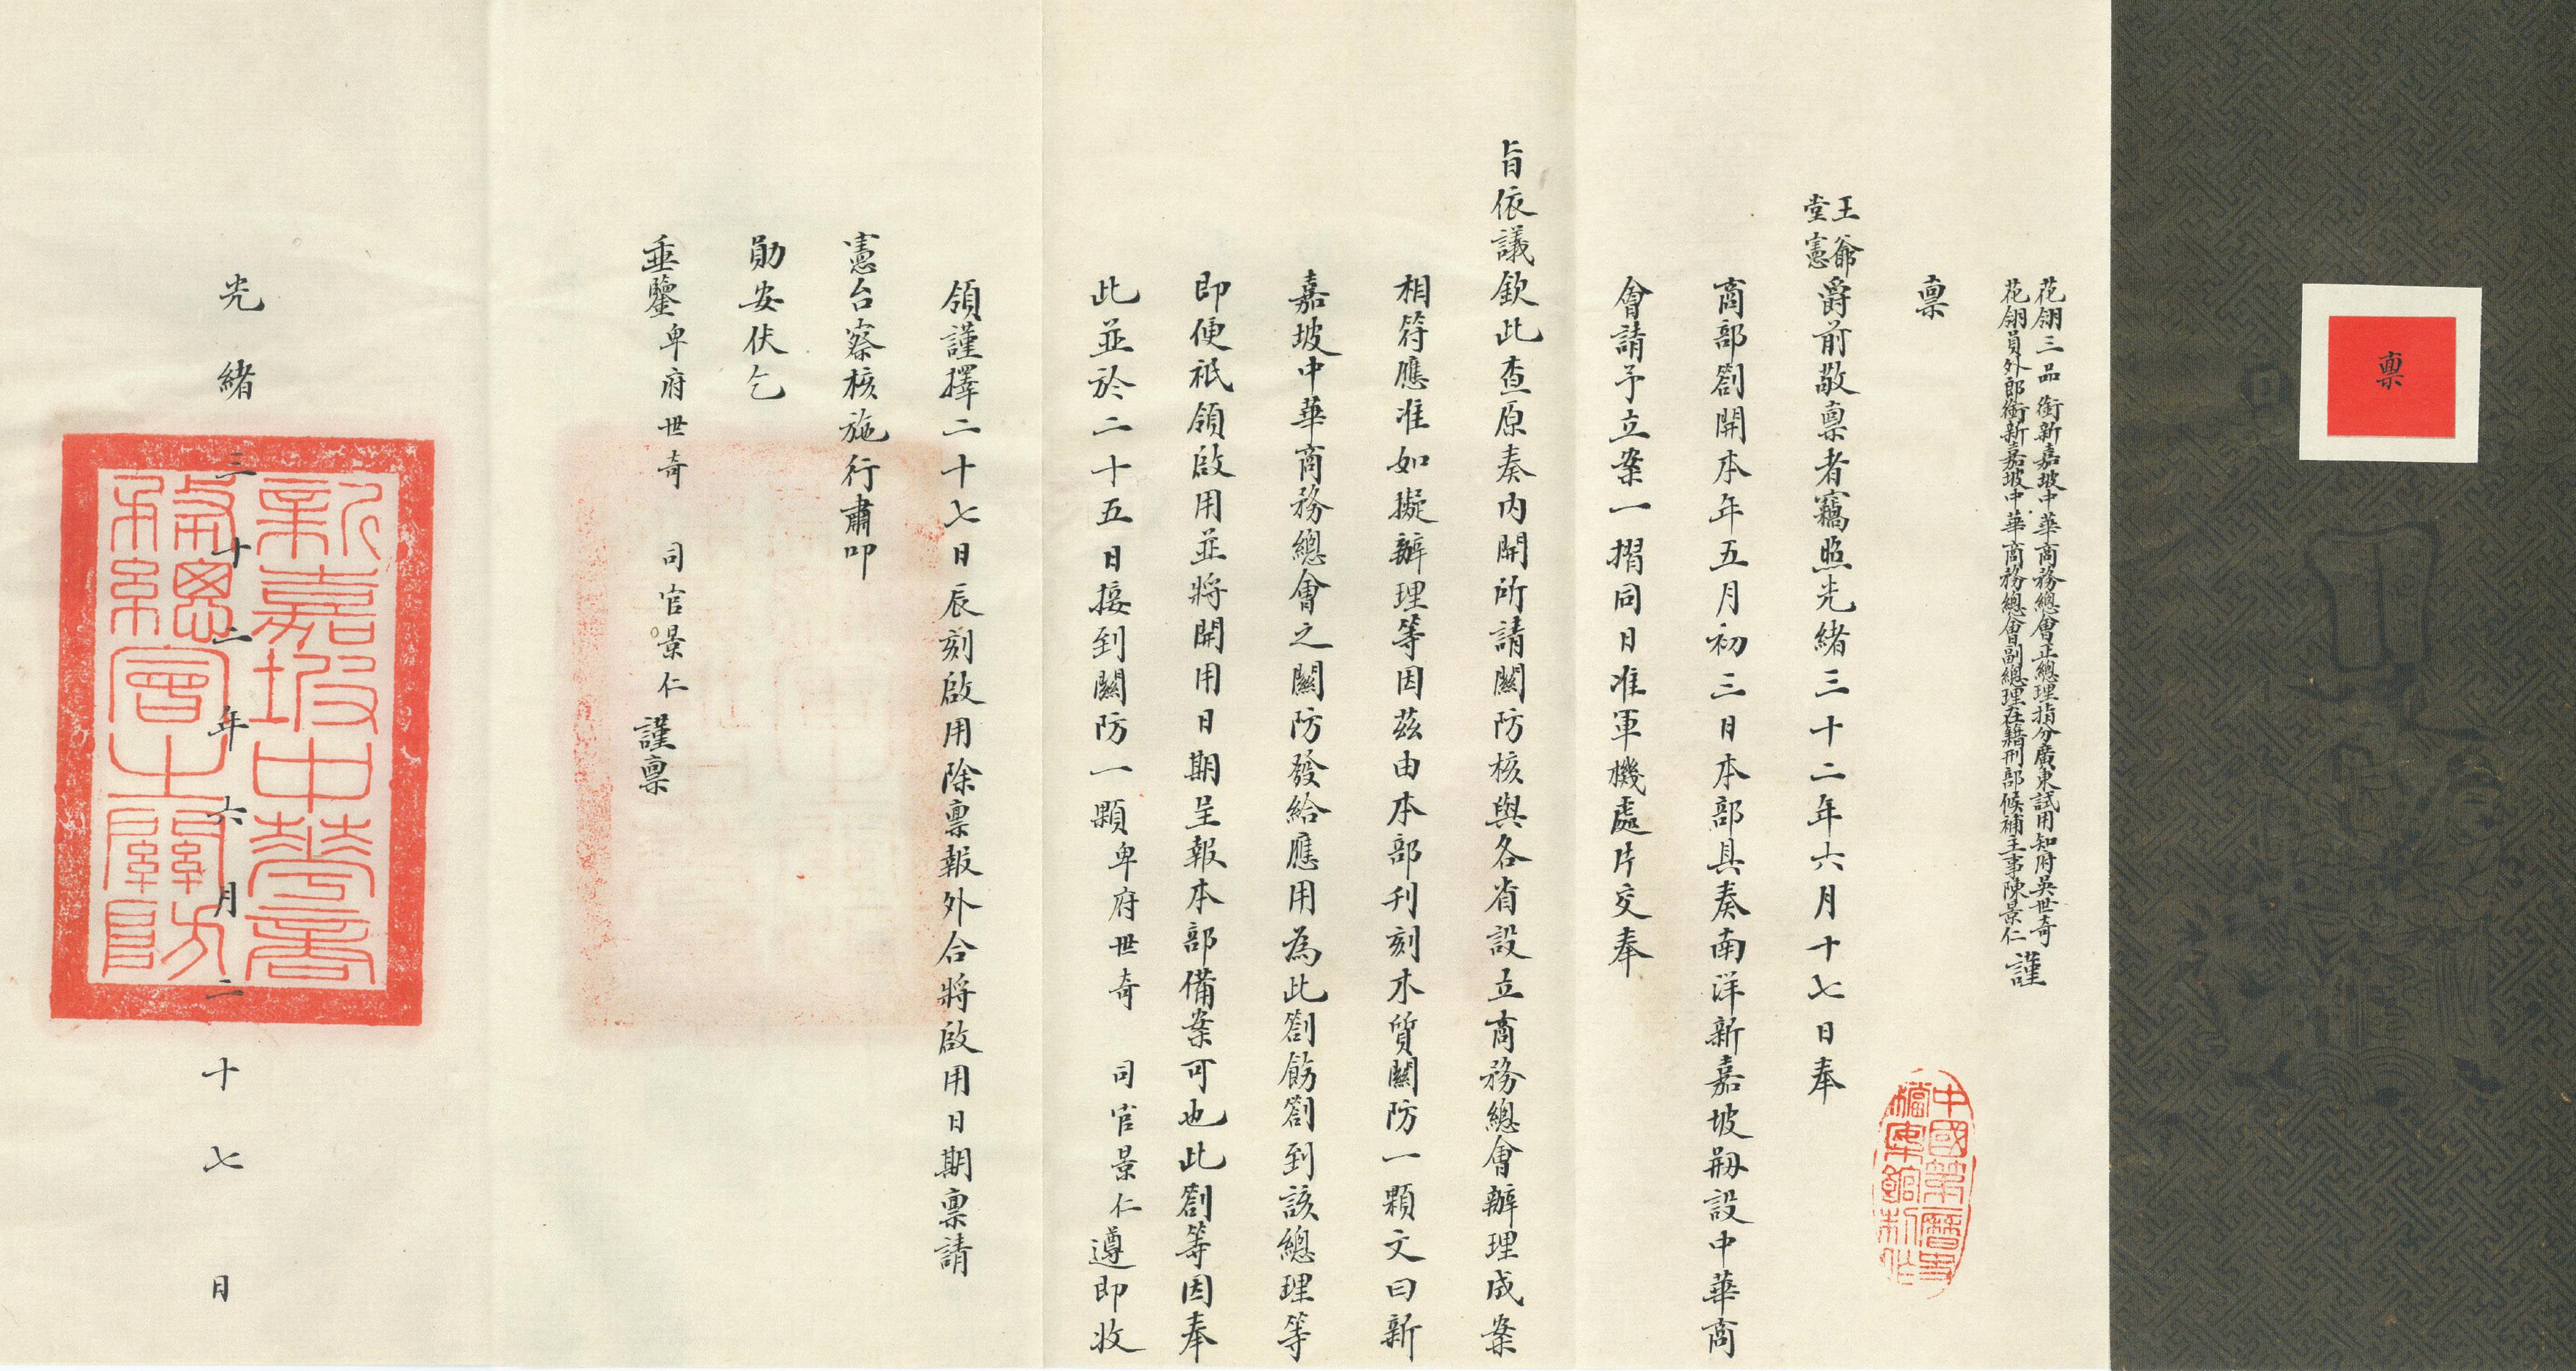 禀
花翎三品銜新嘉坡中華商務總會正總理指分廣東試用知府吳世奇
花翎員外郎銜新嘉坡中華商務總會副總理在籍刑部候補主事陳景仁
謹
禀
王爺
堂憲
爵前敬禀者竊照光緒三十二年六月十七日奉
商部劄開本年五月初三日本部具奏南洋新嘉坡刱設中華商
會請予立案一摺同日准軍機處片交奉
旨依議欽此查原奏內開所請關防核與各省設立商務總會辦理成案
相符應准如擬辦理等因茲由本部刊刻木質關防一顆文曰新
嘉坡中華商務總會之關防發給應用為此劄飭劄到該總理等
即便祇領啟用並將開用日期呈報本部備案可也此劄等因奉
此並於二十五日接到關防一顆卑府世奇 司官景仁遵即收
領謹擇二十七日辰刻啟用除禀報外合將啟用日期禀請
憲台察核施行肅叩
勛安伏乞
垂鑒卑府世奇 司官景仁謹禀
光緒三十二年六月二十七日
新嘉坡中華商
務總會之關防
中國第一歷史
檔案館制作